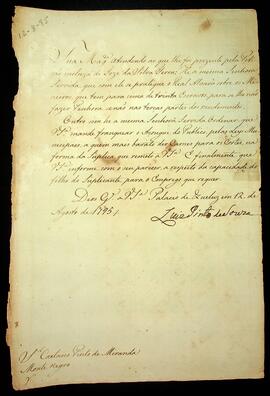 12-8-95
Sua Mag.e attendendo ao que lhe foi prezente pela
incluza de Joze da Silva Serra: He a mesma Senhora
Servida, que com elle se pratique o Real Alvará sobre os Me
neiros, que tem para cima de trinta Escravos, para se lhe não
fazer Penhora senão nas terças partes dos rendimentos.
Outro sim he a mesma Senhora Servida Ordenar, que
V. S.ª mande franquear o Asougue do Publico, pelos
a quem mais barato der Carnes para os Cortes, na
forma da Suplica, que remeto a V. S.ª E finalmente que
V. S.ª informe com o seu parecer, a respeito da capacidade do
filho do Suplicante, para o Emprego que requer.
Deos G.e a V. S.ª Palacio de Queluz em 12 de
Agosto de 1795
Luiz Pinto de Souza
S.r Caetano Pinto de Miranda
Monte Negro